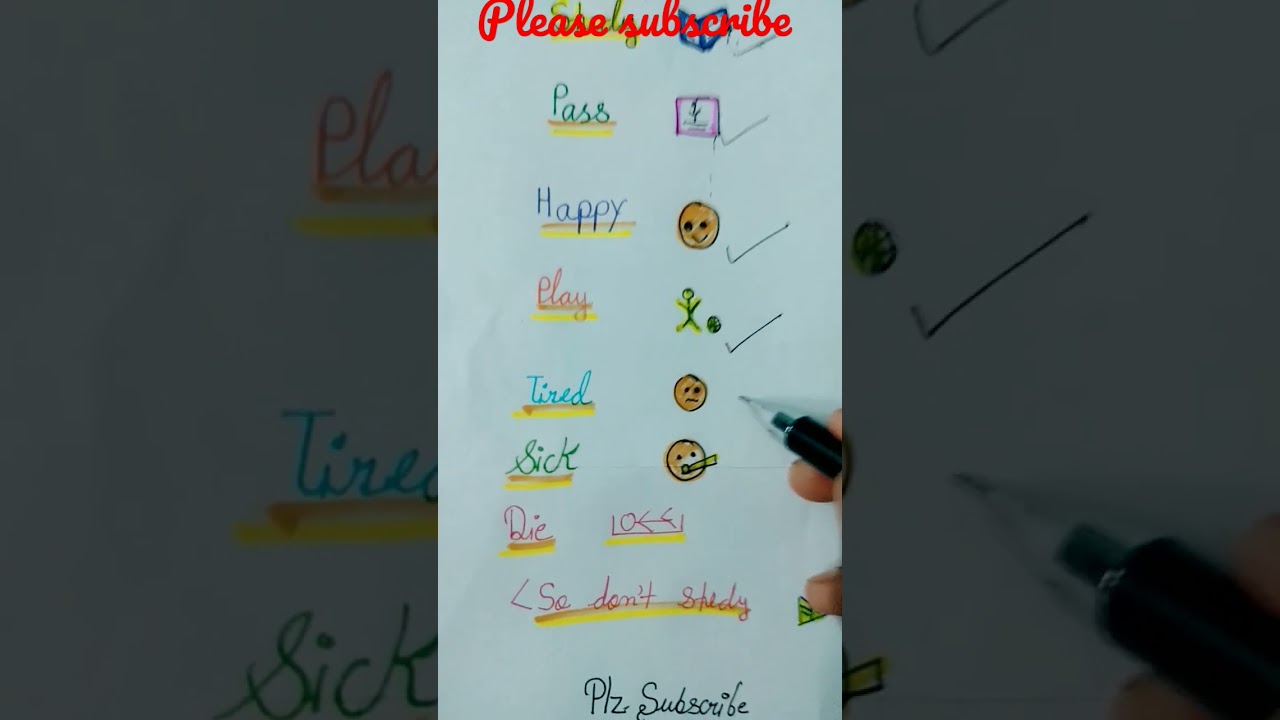 Please subscribe
Study
Pass
Happy
Play
Tired
Sick
Die
<So don't study
Plz Subscribe